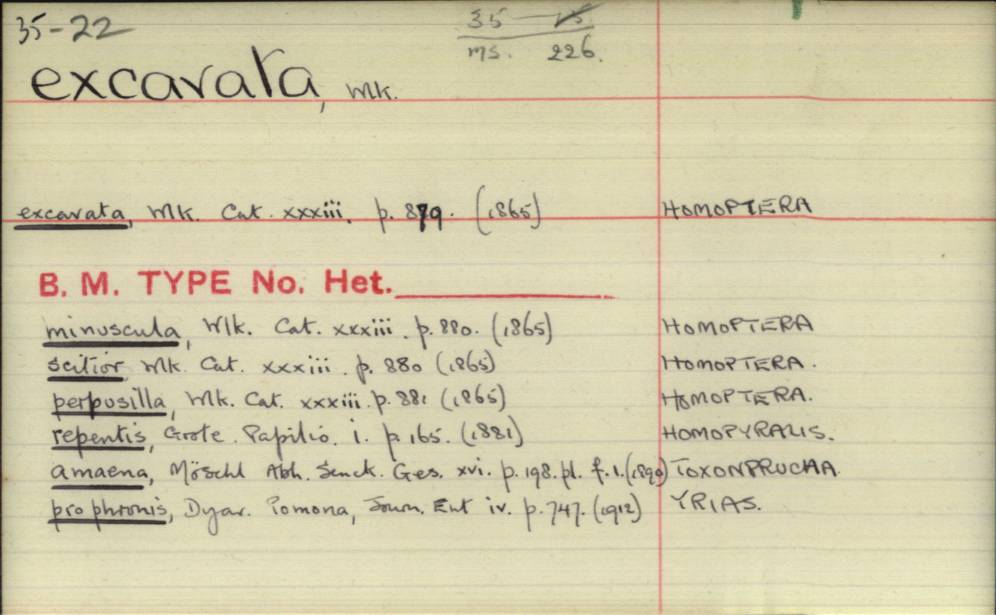 35-22
35 — 15
ms. 226.
excavata, Wlk.
excavata, Wlk. Cat. xxxiii. p. 879. (1865) HOMOPTERA
B. M. TYPE No. Het.
minuscula, Wlk. Cat. xxxiii. p. 880. (1865) HOMOPTERA
scitior Wlk. Cat. xxxiii. p. 880 (1865) HOMOPTERA.
perpusilla, Wlk. Cat. xxxiii. p. 881 (1865) HOMOPTERA.
repentis, Grote. Papilio. i. p. 165. (1881) HOMOPYRALIS.
amaena, Möschl Abh. Senck. Ges. xvi. p. 198. pl. f. 1. (1890) TOXONPRUCHA.
prophronis, Dyar. Pomona, Journ. Ent iv. p. 747. (1912) YRIAS.